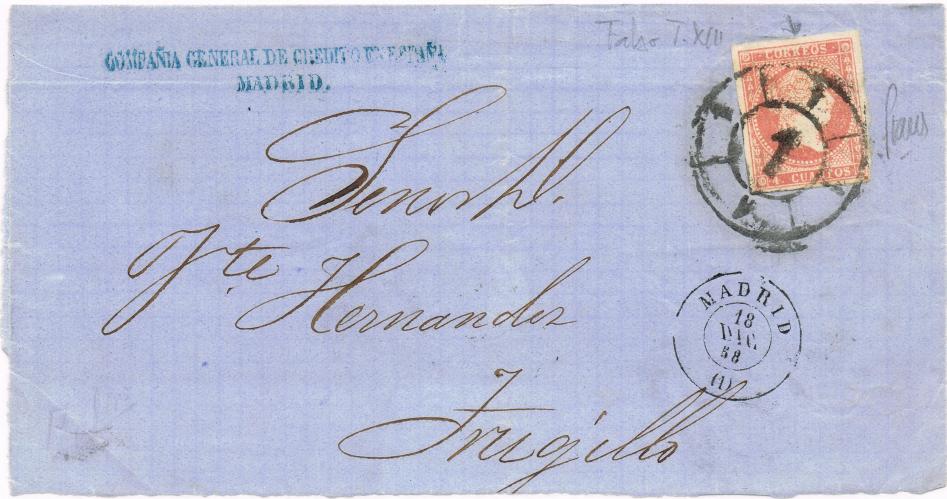 COMPAÑIA GENERAL DE CREDITO EN ESPAÑA
MADRID.
Falso T. XIII
CORREOS
4 CUARTOS
1
Señor Dn.
Vte Hernandez
Trugillo
MADRID
18
DIC.
58
(1)